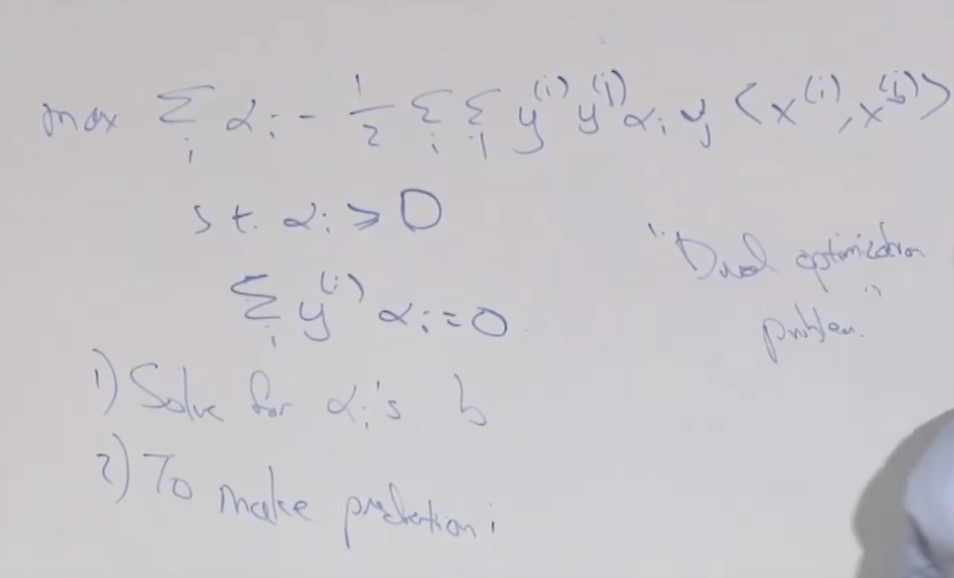 max Σ_i α_i - 1/2 Σ_i Σ_j y^(i) y^(j) α_i α_j <x^(i), x^(j)>
s.t. α_i ≥ 0
Σ_i y^(i) α_i = 0
"Dual optimization
problem."
1) Solve for α_i's b
2) To make prediction: